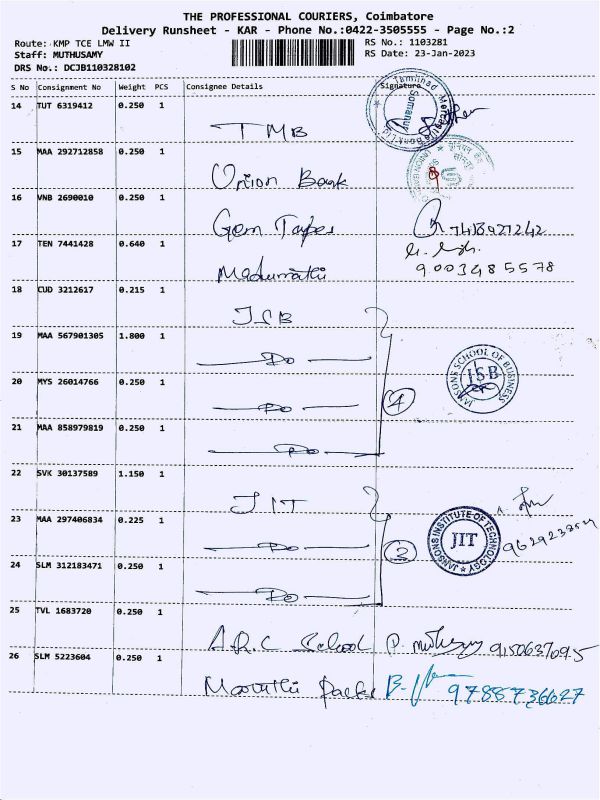 THE PROFESSIONAL COURIERS, Coimbatore
Delivery Runsheet - KAR - Phone No.:0422-3505555 - Page No.:2
Route: KMP TCE LMW II
RS No.: 1103281
Staff: MUTHUSAMY
RS Date: 23-Jan-2023
DRS No.: DCJB110328102
S No Consignment No Weight PCS Consignee Details Signature
14 TUT 6319412 0.250 1 TMB
15 MAA 292712858 0.250 1 Union Bank
16 VNB 2690010 0.250 1 Gem Tapes
17 TEN 7441428 0.640 1 9003485578
18 CUD 3212617 0.215 1 JSB
19 MAA 567901305 1.800 1 Do
20 MYS 26014766 0.250 1 Do
21 MAA 858979819 0.250 1 Do
4
JANSONS SCHOOL OF BUSINESS
JSB
22 SVK 30137589 1.150 1 JIT
23 MAA 297406834 0.225 1 Do
24 SLM 312183471 0.250 1 Do
3
JANSONS INSTITUTE OF TECHNOLOGY
JIT
25 TVL 1683720 0.250 1 A.R.C School 9150637095
26 SLM 5223604 0.250 1 9788736627